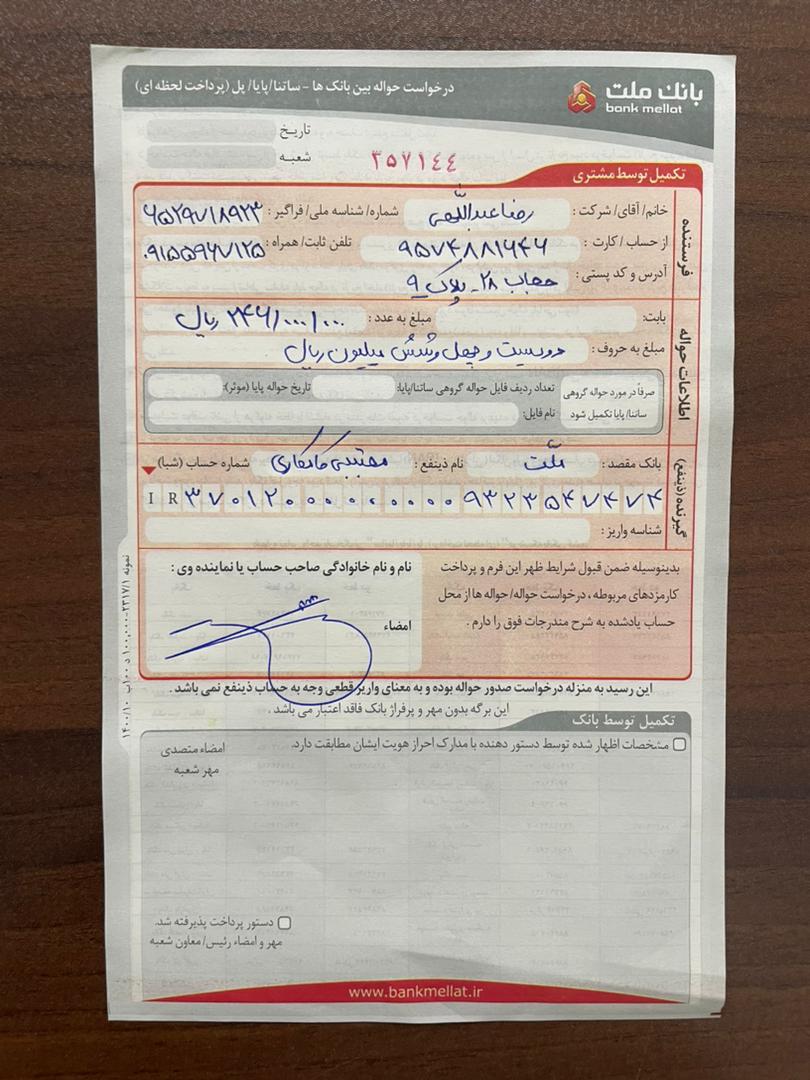 بانک ملت
bank mellat
درخواست حواله بین بانک ها - ساتنا/پایا/پل (پرداخت لحظه ای)
تاریخ
شعبه
۳۵۷۱۴۴
تکمیل توسط مشتری
فرستنده
خانم/آقای/شرکت: رضا عبداللهی شماره/شناسه ملی/فراگیر: ۶۵۲۹۷۱۸۹۲۳
از حساب/کارت: ۹۵۷۴۸۸۱۶۴۶ تلفن ثابت/همراه: ۰۹۱۵۵۹۶۷۱۲۵
آدرس و کد پستی: حجاب ۲۸ - پلاک ۹
اطلاعات حواله
بابت: مبلغ به عدد: ۲۴۶/۰۰۰/۰۰۰ ریال
مبلغ به حروف: دویست و چهل و شش میلیون ریال
صرفاً در مورد حواله گروهی ساتنا/پایا تکمیل شود
تعداد ردیف فایل حواله گروهی ساتنا/پایا: تاریخ حواله پایا (موثر):
نام فایل:
گیرنده (ذینفع)
بانک مقصد: ملّت نام ذینفع: مجتبی کامکاری شماره حساب (شبا)
IR ۳۷۰۱۲۰۰۰۰۰۰۰۰۰۰۹۳۲۳۵۴۷۴۷۴
شناسه واریز:
بدینوسیله ضمن قبول شرایط ظهر این فرم و پرداخت
کارمزدهای مربوطه، درخواست حواله/حواله ها از محل
حساب یادشده به شرح مندرجات فوق را دارم.
نام و نام خانوادگی صاحب حساب یا نماینده وی:
امضاء
این رسید به منزله درخواست صدور حواله بوده و به معنای واریز قطعی وجه به حساب ذینفع نمی باشد.
این برگه بدون مهر و پرفراژ بانک فاقد اعتبار می باشد.
تکمیل توسط بانک
مشخصات اظهار شده توسط دستور دهنده با مدارک احراز هویت ایشان مطابقت دارد.
امضاء متصدی
مهر شعبه
دستور پرداخت پذیرفته شد.
مهر و امضاء رئیس/معاون شعبه
www.bankmellat.ir
نمونه ۲۳۱۷/۱-۱۰۰,۰۰۰ د ۱۰۰ب ۱۴۰۰/۱۰